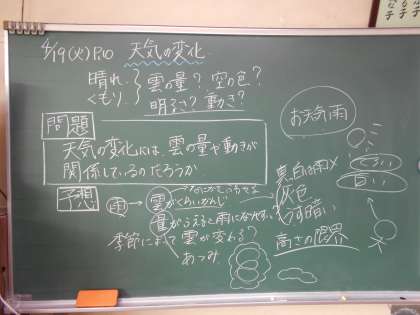 4/19(火) P.10 天気の変化
晴れ
くもり
雲の量? 空の色?
明るさ? 動き?
お天気雨
問題
天気の変化には、雲の量や動きが
関係しているのだろうか
予想
雨 → 雲がくらいかんじ
量がふえると雨になりやすい?
季節によって雲が変わる?
あつみ
黒白は雨×
灰色
うす暗い
高さの限界
白い